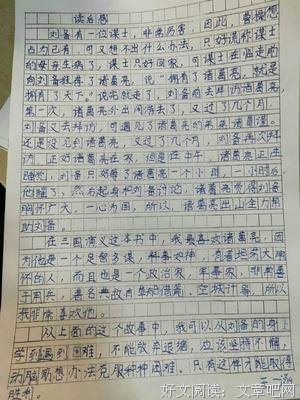 读后感
刘备有一位谋士，非常厉害，因此，曹操想
占为己有，可又想不出什么办法，只好谎称谋士
的母亲生病了，谋士只好回家，可谋士在临走前
向刘备推荐了诸葛亮，说“拥有了诸葛亮，就是
拥有了天下。”说完就走了，刘备前去拜访诸葛亮，
第一次，诸葛亮外出闲游去了，又过了几个月，
刘备又去拜访，可遇见了诸葛亮的弟弟诸葛谨。
还是没见到诸葛亮，又过了几个月，刘备再次拜
访，正好诸葛亮在家，但是在中午，诸葛亮正在
睡觉，刘备只好等了诸葛亮一个小时，一小时后
他醒了，然后起身和刘备讨论，诸葛亮觉得刘备
胸怀广大，一心为国，所以，诸葛亮出山全力帮
助刘备。
在三国演义这本书中，我最喜欢诸葛亮，因
为他是一个足智多谋，料事如神，有着坦荡大
怀的人，而且也是一个政治家，军事家，非常善
于用兵，著名典故有草船借箭，空城计等，所以
我非常喜欢他。
从上面的这个故事中，我可以从刘备的身上
学到遇到困难，不能放弃退缩，应该坚持不懈，
动脑筋想办法克服种种困难。只有这样才能取得
胜利。
好文阅读：文章吧网